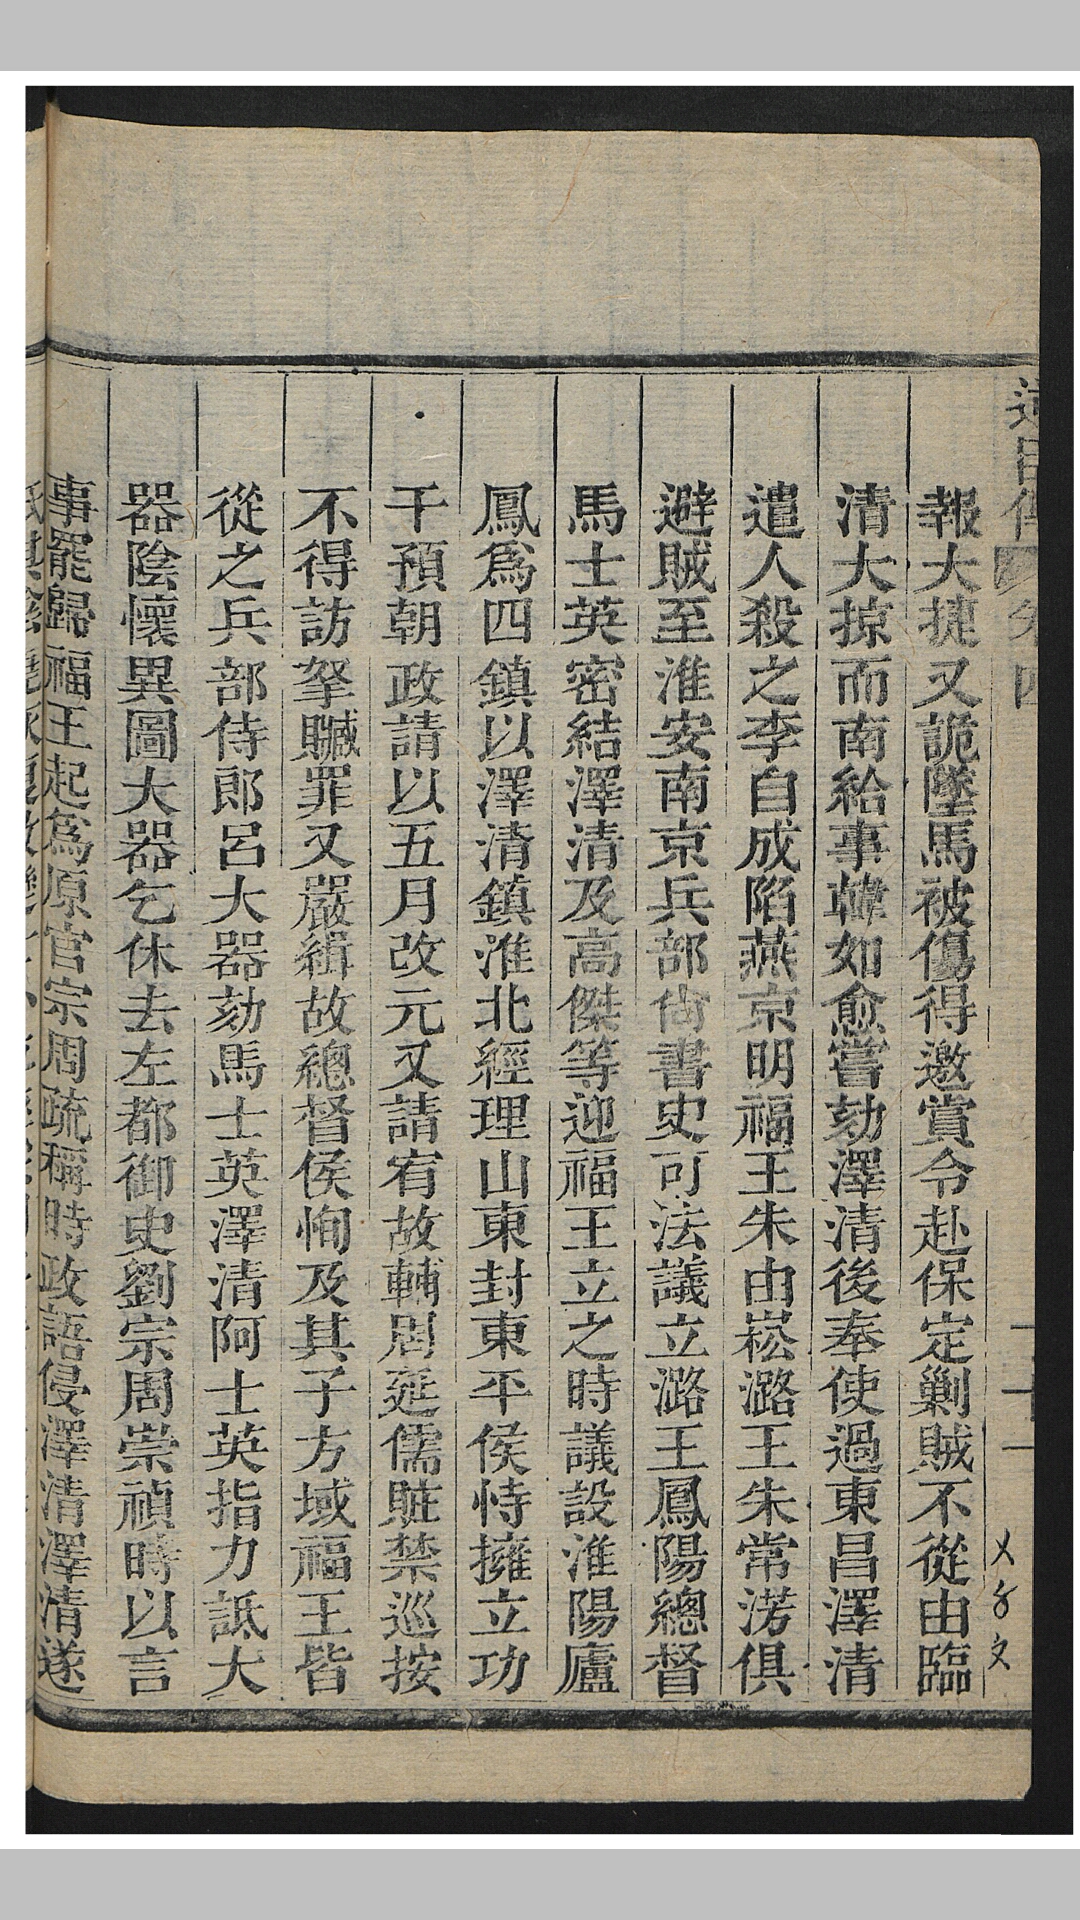 報大捷又詭墜馬被傷得邀賞令赴保定剿賊不從由臨
清大掠而南給事韓如愈嘗劾澤清後奉使過東昌澤清
遣人殺之李自成陷燕京明福王朱由崧潞王朱常淓俱
避賊至淮安南京兵部尙書史可法議立潞王鳳陽總督
馬士英密結澤清及高傑等迎福王立之時議設淮陽廬
鳳爲四鎮以澤清鎮淮北經理山東封東平侯恃擁立功
干預朝政請以五月改元又請宥故輔周延儒贓禁巡按
不得訪拏贓罪又嚴緝故總督侯恂及其子方域福王皆
從之兵部侍郎呂大器劾馬士英澤清阿士英指力詆大
器陰懷異圖大器乞休去左都御史劉宗周崇禎時以言
事罷歸福王起爲原官宗周疏稱時政語侵澤清澤清遂